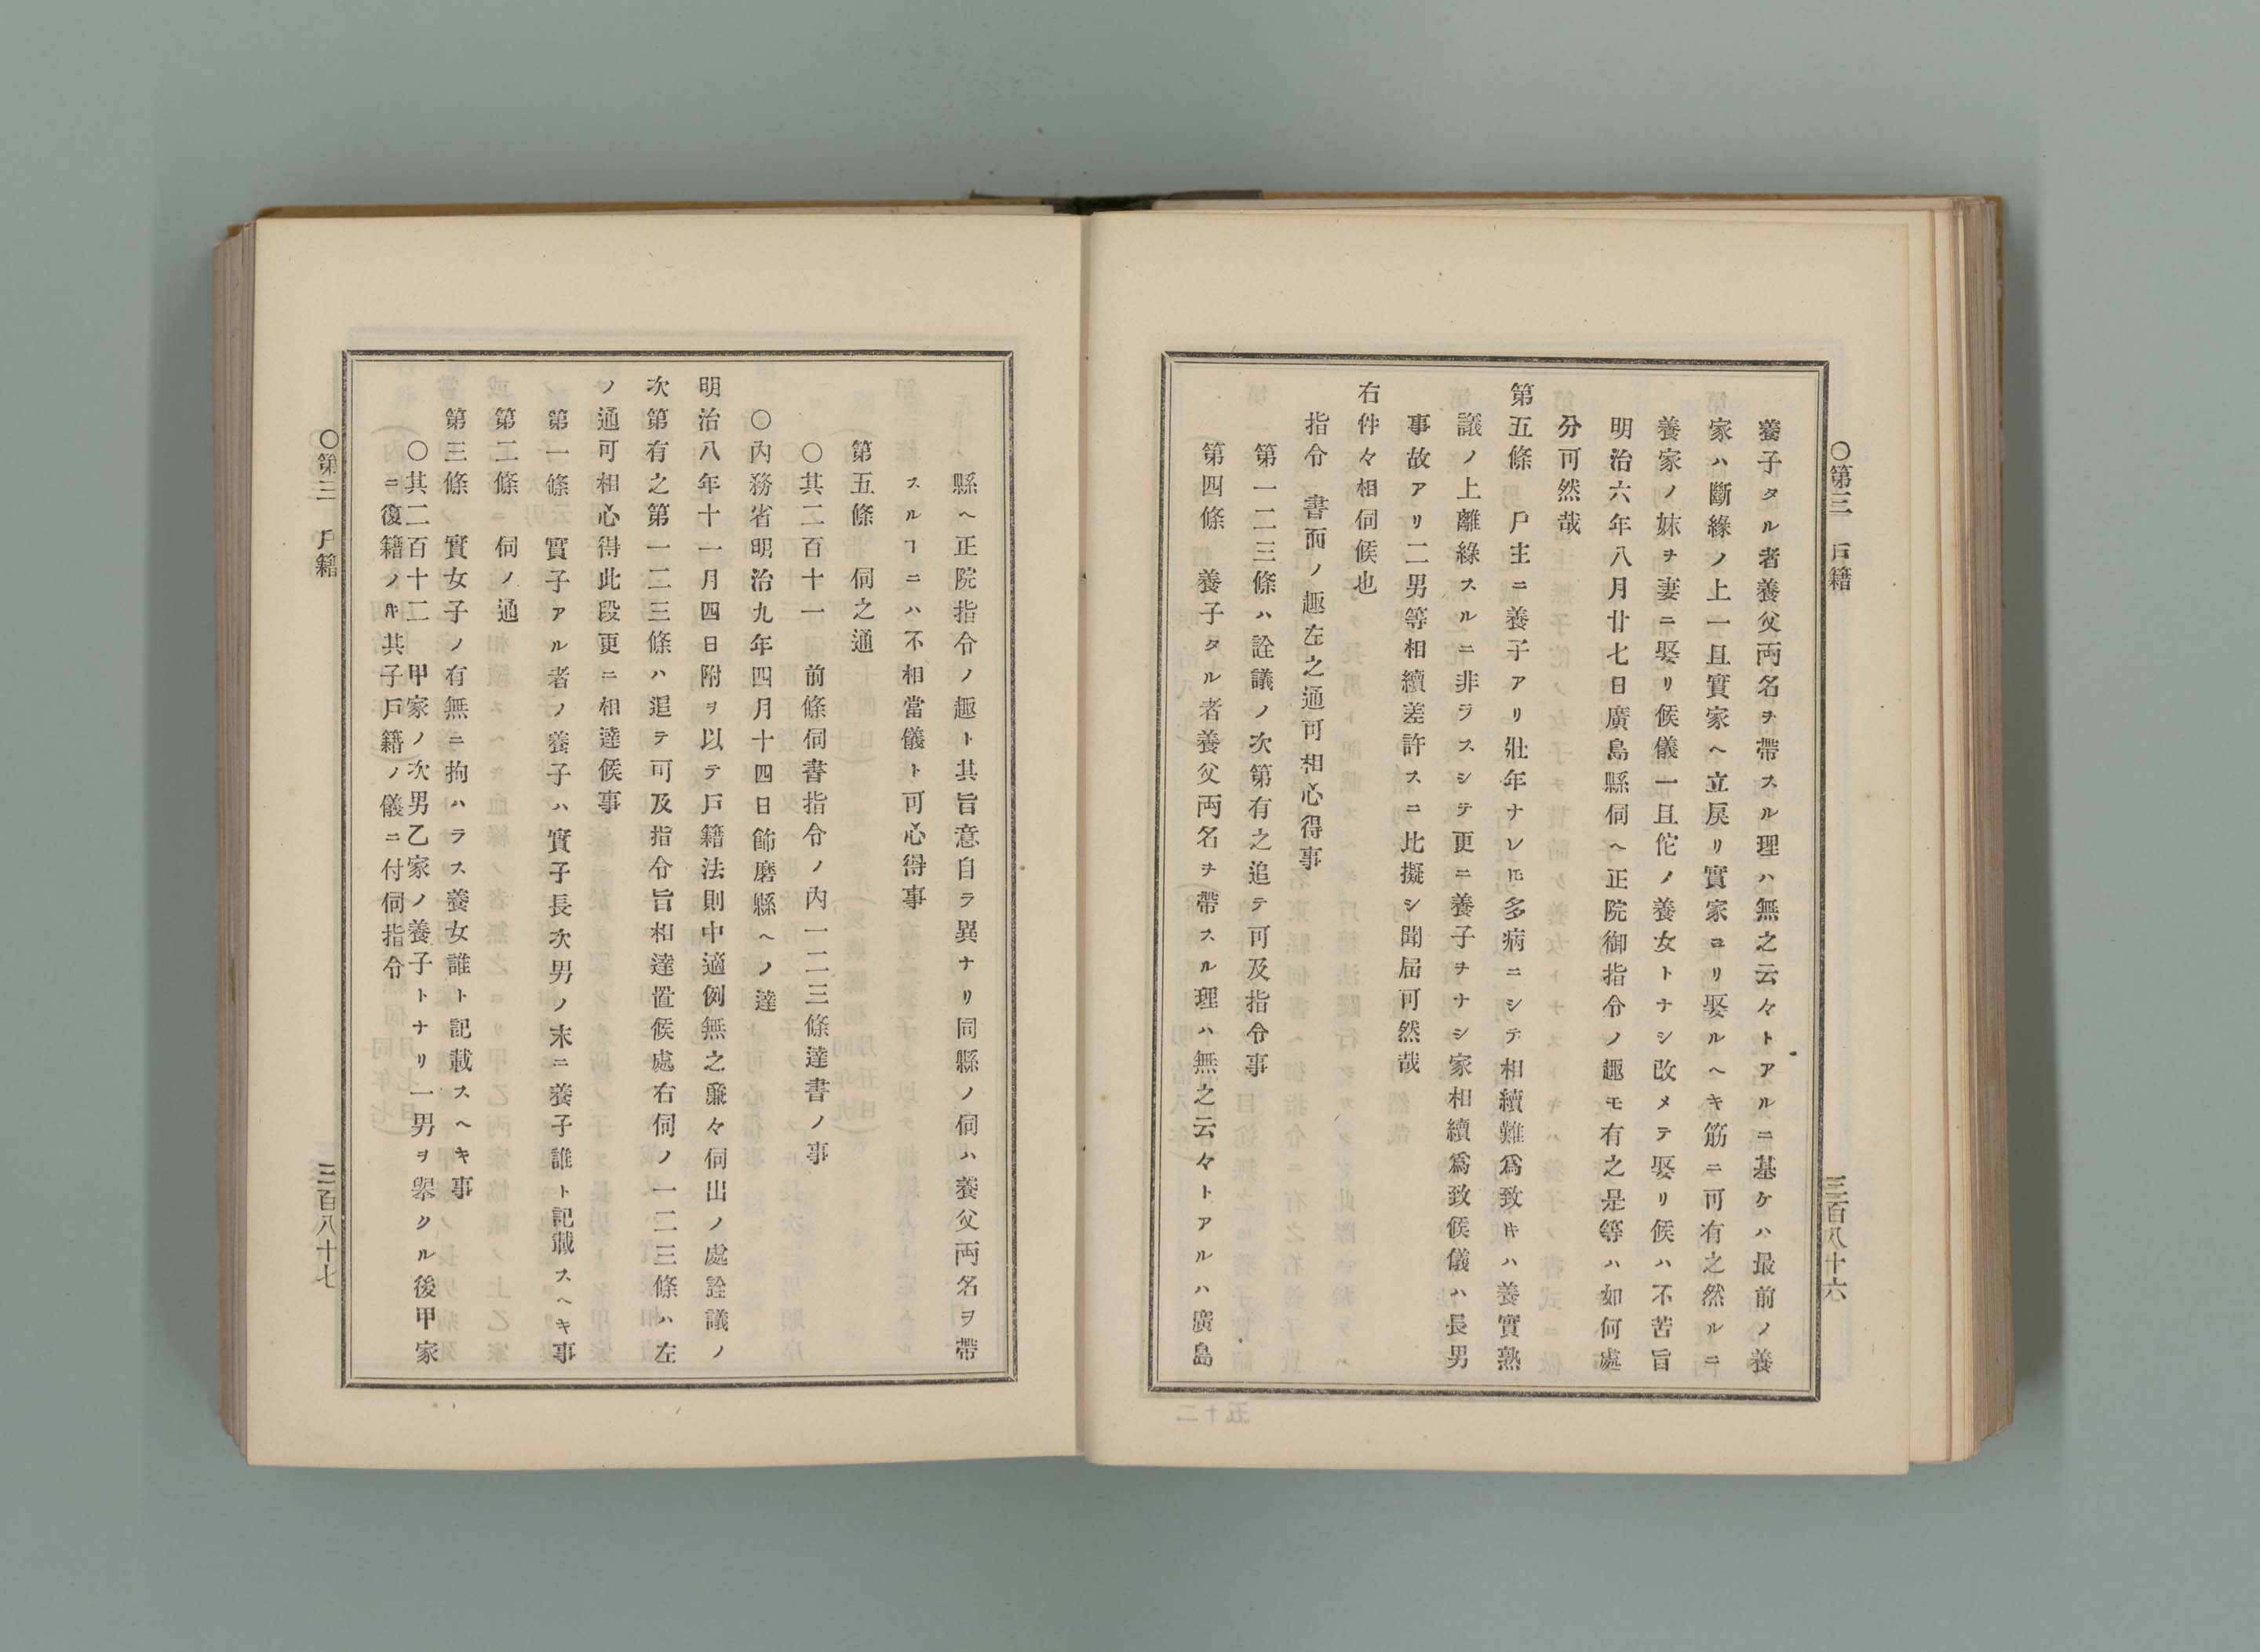 〇第三　戶籍　三百八十六
養子タル者養父両名ヲ帶スル理ハ無之云々トアルニ基ケハ最前ノ養
家ハ斷緣ノ上一旦實家ヘ立戾リ實家ヨリ娶ルヘキ筋ニ可有之然ルニ
養家ノ妹ヲ妻ニ娶リ候儀一旦佗ノ養女トナシ改メテ娶リ候ハ不苦旨
明治六年八月廿七日廣島縣伺ヘ正院御指令ノ趣モ有之是等ハ如何處
分可然哉
第五條　戶主ニ養子アリ壯年ナレ𪜈多病ニシテ相續難爲致キハ養實熟
議ノ上離緣スルニ非ラスシテ更ニ養子ヲナシ家相續爲致候儀ハ長男
事故アリ二男等相續差許スニ比擬シ聞届可然哉
右件々相伺候也
指令　書面ノ趣左之通可相心得事
第一二三條ハ詮議ノ次第有之追テ可及指令事
第四條　養子タル者養父両名ヲ帶スル理ハ無之云々トアルハ廣島
縣ヘ正院指令ノ趣ト其旨意自ラ異ナリ同縣ノ伺ハ養父両名ヲ帶
スルヿニハ不相當儀ト可心得事
第五條　伺之通
〇其二百十一　前條伺書指令ノ内一二三條達書ノ事
〇內務省明治九年四月十四日飾磨縣ヘノ達
明治八年十一月四日附ヲ以テ戶籍法則中適例無之廉々伺出ノ處詮議ノ
次第有之第一二三條ハ追テ可及指令旨相達置候處右伺ノ一二三條ハ左
ノ通可相心得此段更ニ相達候事
第一條　實子アル者ノ養子ハ實子長次男ノ末ニ養子誰ト記載スヘキ事
第二條　伺ノ通
第三條　實女子ノ有無ニ拘ハラス養女誰ト記載スヘキ事
〇其二百十二　甲家ノ次男乙家ノ養子トナリ一男ヲ擧クル後甲家
ニ復籍ノ𪜈其子戶籍ノ儀ニ付伺指令
〇第三　戶籍　三百八十七